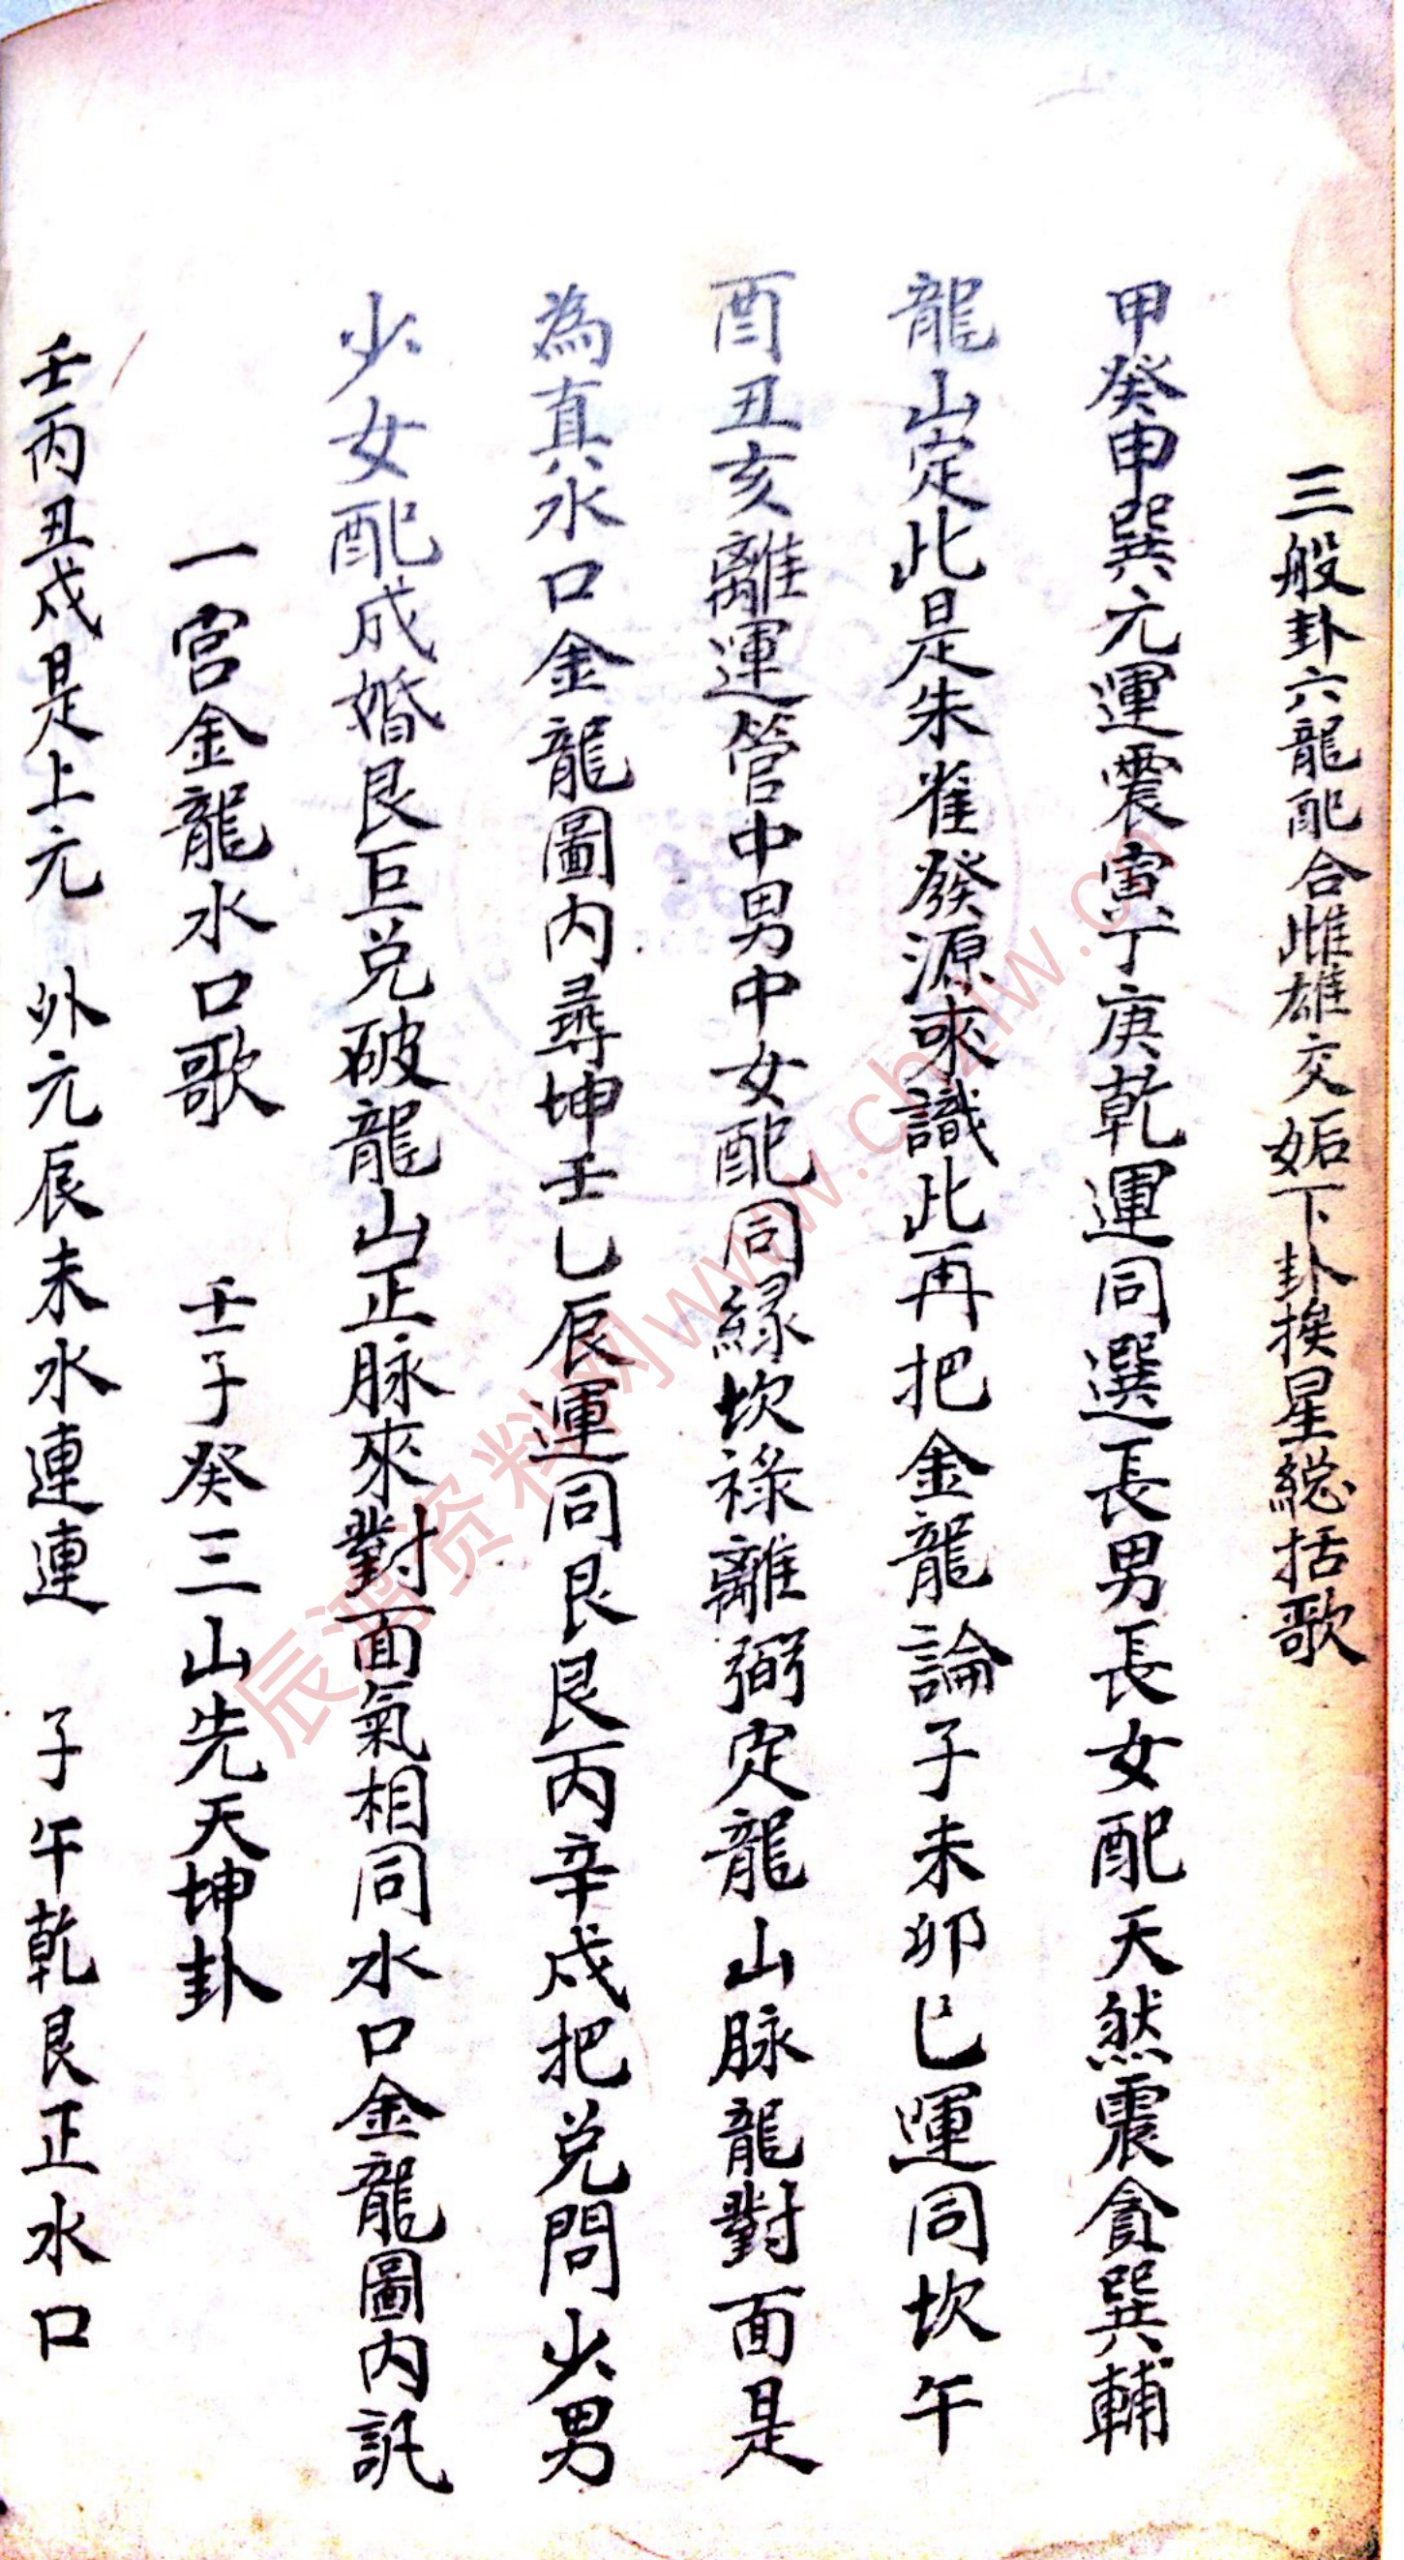 三般卦六龍配合雌雄交姤下卦挨星総括歌
甲癸申巽元運震寅丁庚乾運同選長男長女配天然震貪巽輔
龍山定此是朱雀發源来識此再把金龍論子未卯巳運同坎午
酉丑亥離運管中男中女配同緣坎祿離弼定龍山脉龍對面是
為真水口金龍圖内尋坤壬乙辰運同艮艮丙辛戌把兌問少男
少女配成婚艮巨兌破龍山正脉來對面氣相同水口金龍圖内訊
一宮金龍水口歌 壬子癸三山先天坤卦
壬丙丑戌是上元 外元辰未水連連 子午乾艮正水口
辰鸿资料网www.chziw.cn